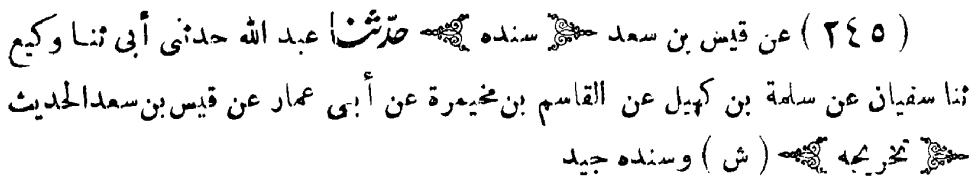 ( ٢٤٥ ) عن قيس بن سعد ﴿ سنده ﴾ حدثنا عبد الله حدثنى أبى ثنا وكيع
ثنا سفيان عن سلمة بن كهيل عن القاسم بن مخيمرة عن أبى عمار عن قيس بن سعد الحديث
﴿ تخريجه ﴾ ( ش ) وسنده جيد